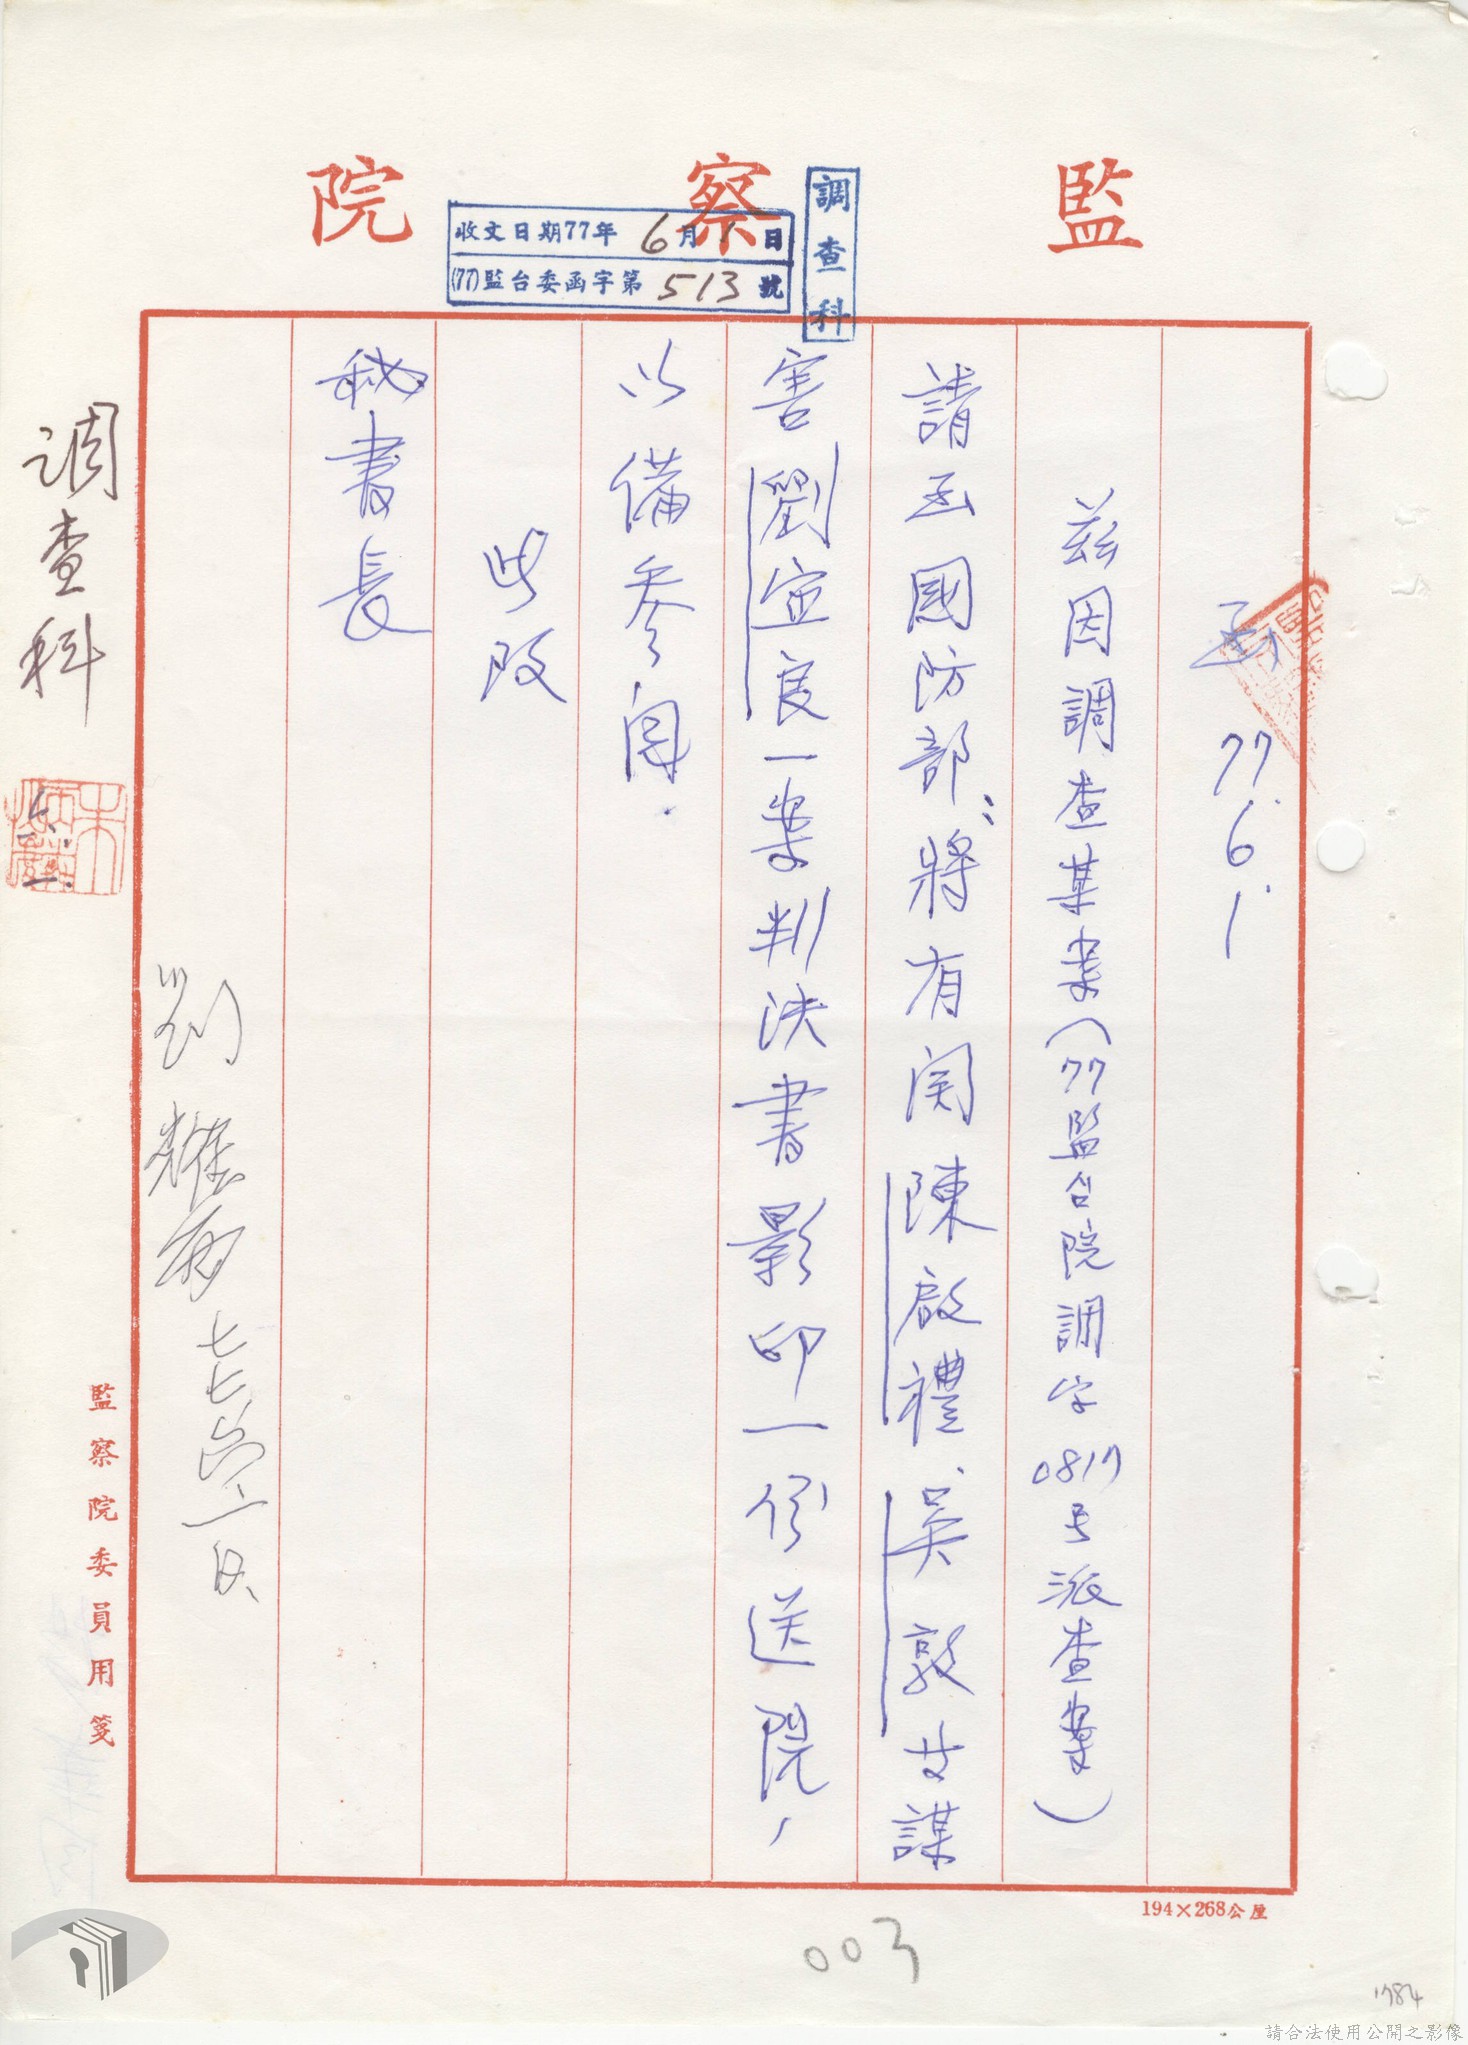 監察院
調查科
收文日期77年6月1日
(77)監台委函字第513號
函 77.6.1
茲因調查某案(77監台院調字0817号派查案)
請函國防部:將有関陳啟禮、吳敦共謀
害劉宜良一案判決書影印一份送院,
以備參閱.
此致
秘書長
劉耀西 七七、六、一日
調查科
六.一.
監察院委員用箋
194×268公厘
003
1784
請合法使用公開之影像